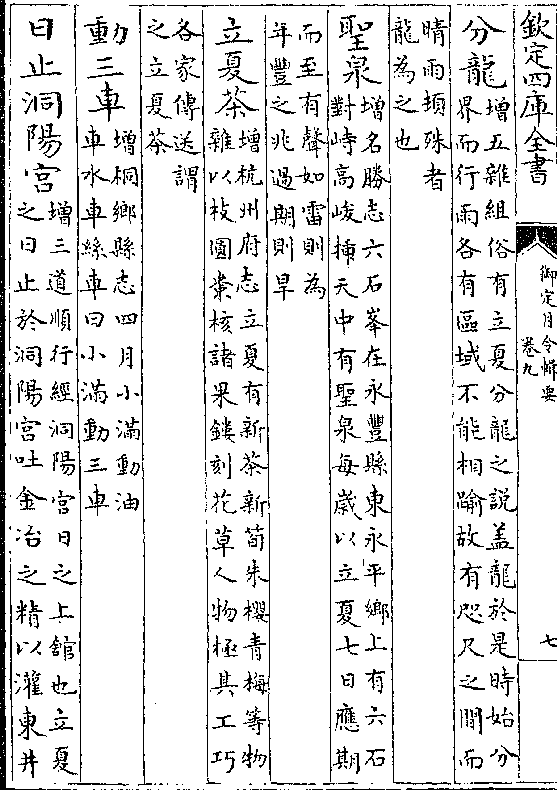 欽定四庫全書
御定月令輯要
卷九
七
分龍
增五雜組俗有立夏分龍之説盖龍於是時始分
界而行雨各有區域不能相踰故有咫尺之間而
晴雨頓殊者
龍為之也
聖泉
增名勝志六石峯在永豐縣東永平鄉上有六石
對峙高峻揷天中有聖泉每歲以立夏七日應期
而至有聲如雷則為
年豐之兆過期則旱
立夏茶
增杭州府志立夏有新茶新筍朱櫻青梅等物
雜以枝圓棗核諸果鏤刻花草人物極其工巧
各家傳送謂
之立夏茶
動三車
增桐鄉縣志四月小滿動油
車水車絲車曰小滿動三車
日止洞陽宮
增三道順行經洞陽宮日之上館也立夏
之日止於洞陽宮吐金冶之精以灌東井